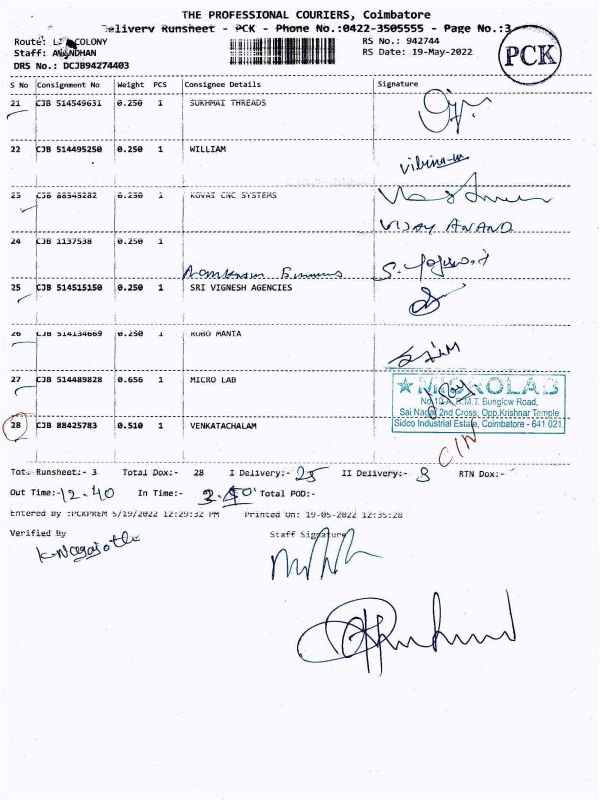 THE PROFESSIONAL COURIERS, Coimbatore
Delivery Runsheet - PCK - Phone No.:0422-3505555 - Page No.:3
Route: COLONY
RS No.: 942744
PCK
Staff:
RS Date: 19-May-2022
DRS No.: DCJB94274403
S No Consignment No Weight PCS Consignee Details Signature
21 CJB 514549631 0.250 1 SUKHMAI THREADS
22 CJB 514495250 0.250 1 WILLIAM
23 CJB 88545282 0.250 1 KOVAI CNC SYSTEMS
VIJAY ANAND
24 CJB 1137538 0.250 1
25 CJB 514515150 0.250 1 SRI VIGNESH AGENCIES
26 CJB 514134669 0.250 1 ROBO MANIA
27 CJB 514489828 0.656 1 MICRO LAB
MICROLAB
Bunglow Road,
Sai Nagar 2nd Cross, Opp.Krishnar Temple
Sidco Industrial Estate, Coimbatore - 641 021
28 CJB 88425783 0.510 1 VENKATACHALAM
Tot. Runsheet:- 3 Total Dox:- 28 I Delivery:- 25 II Delivery:- 3 RTN Dox:-
Out Time:- 12.40 In Time:- Total POD:-
Entered By :PCKPREM 5/19/2022 12:29:32 PM Printed On: 19-05-2022 12:35:28
Verified By Staff Signature